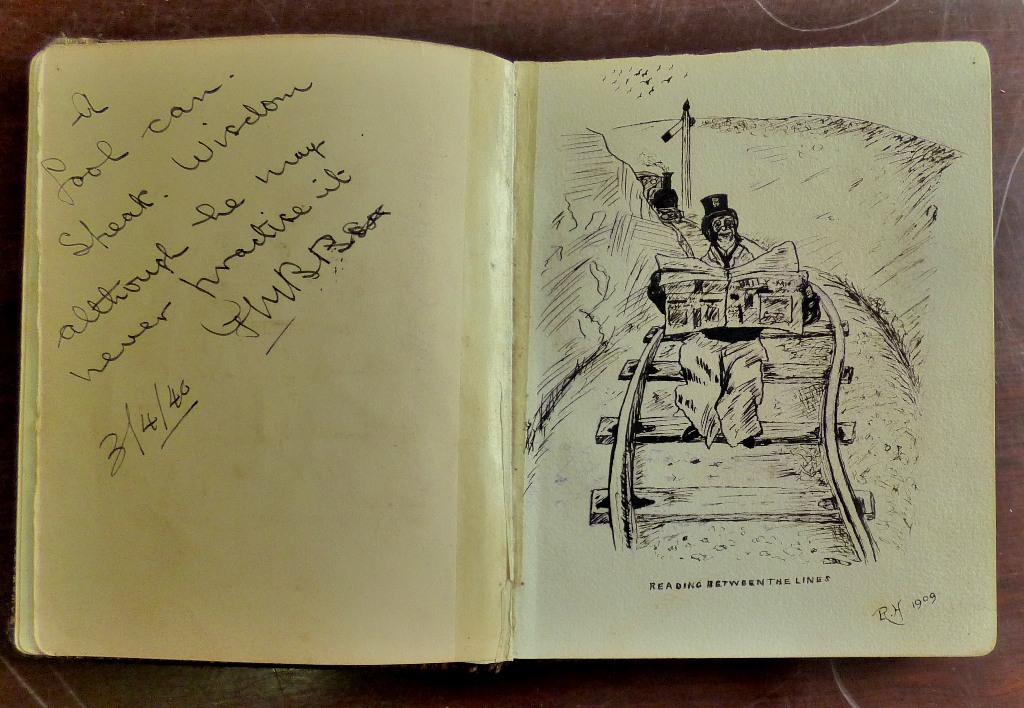 A
fool can.
Speak. Wisdom
although he may
never practise it
3/4/40
DAILY
READING BETWEEN THE LINES
R.H 1909